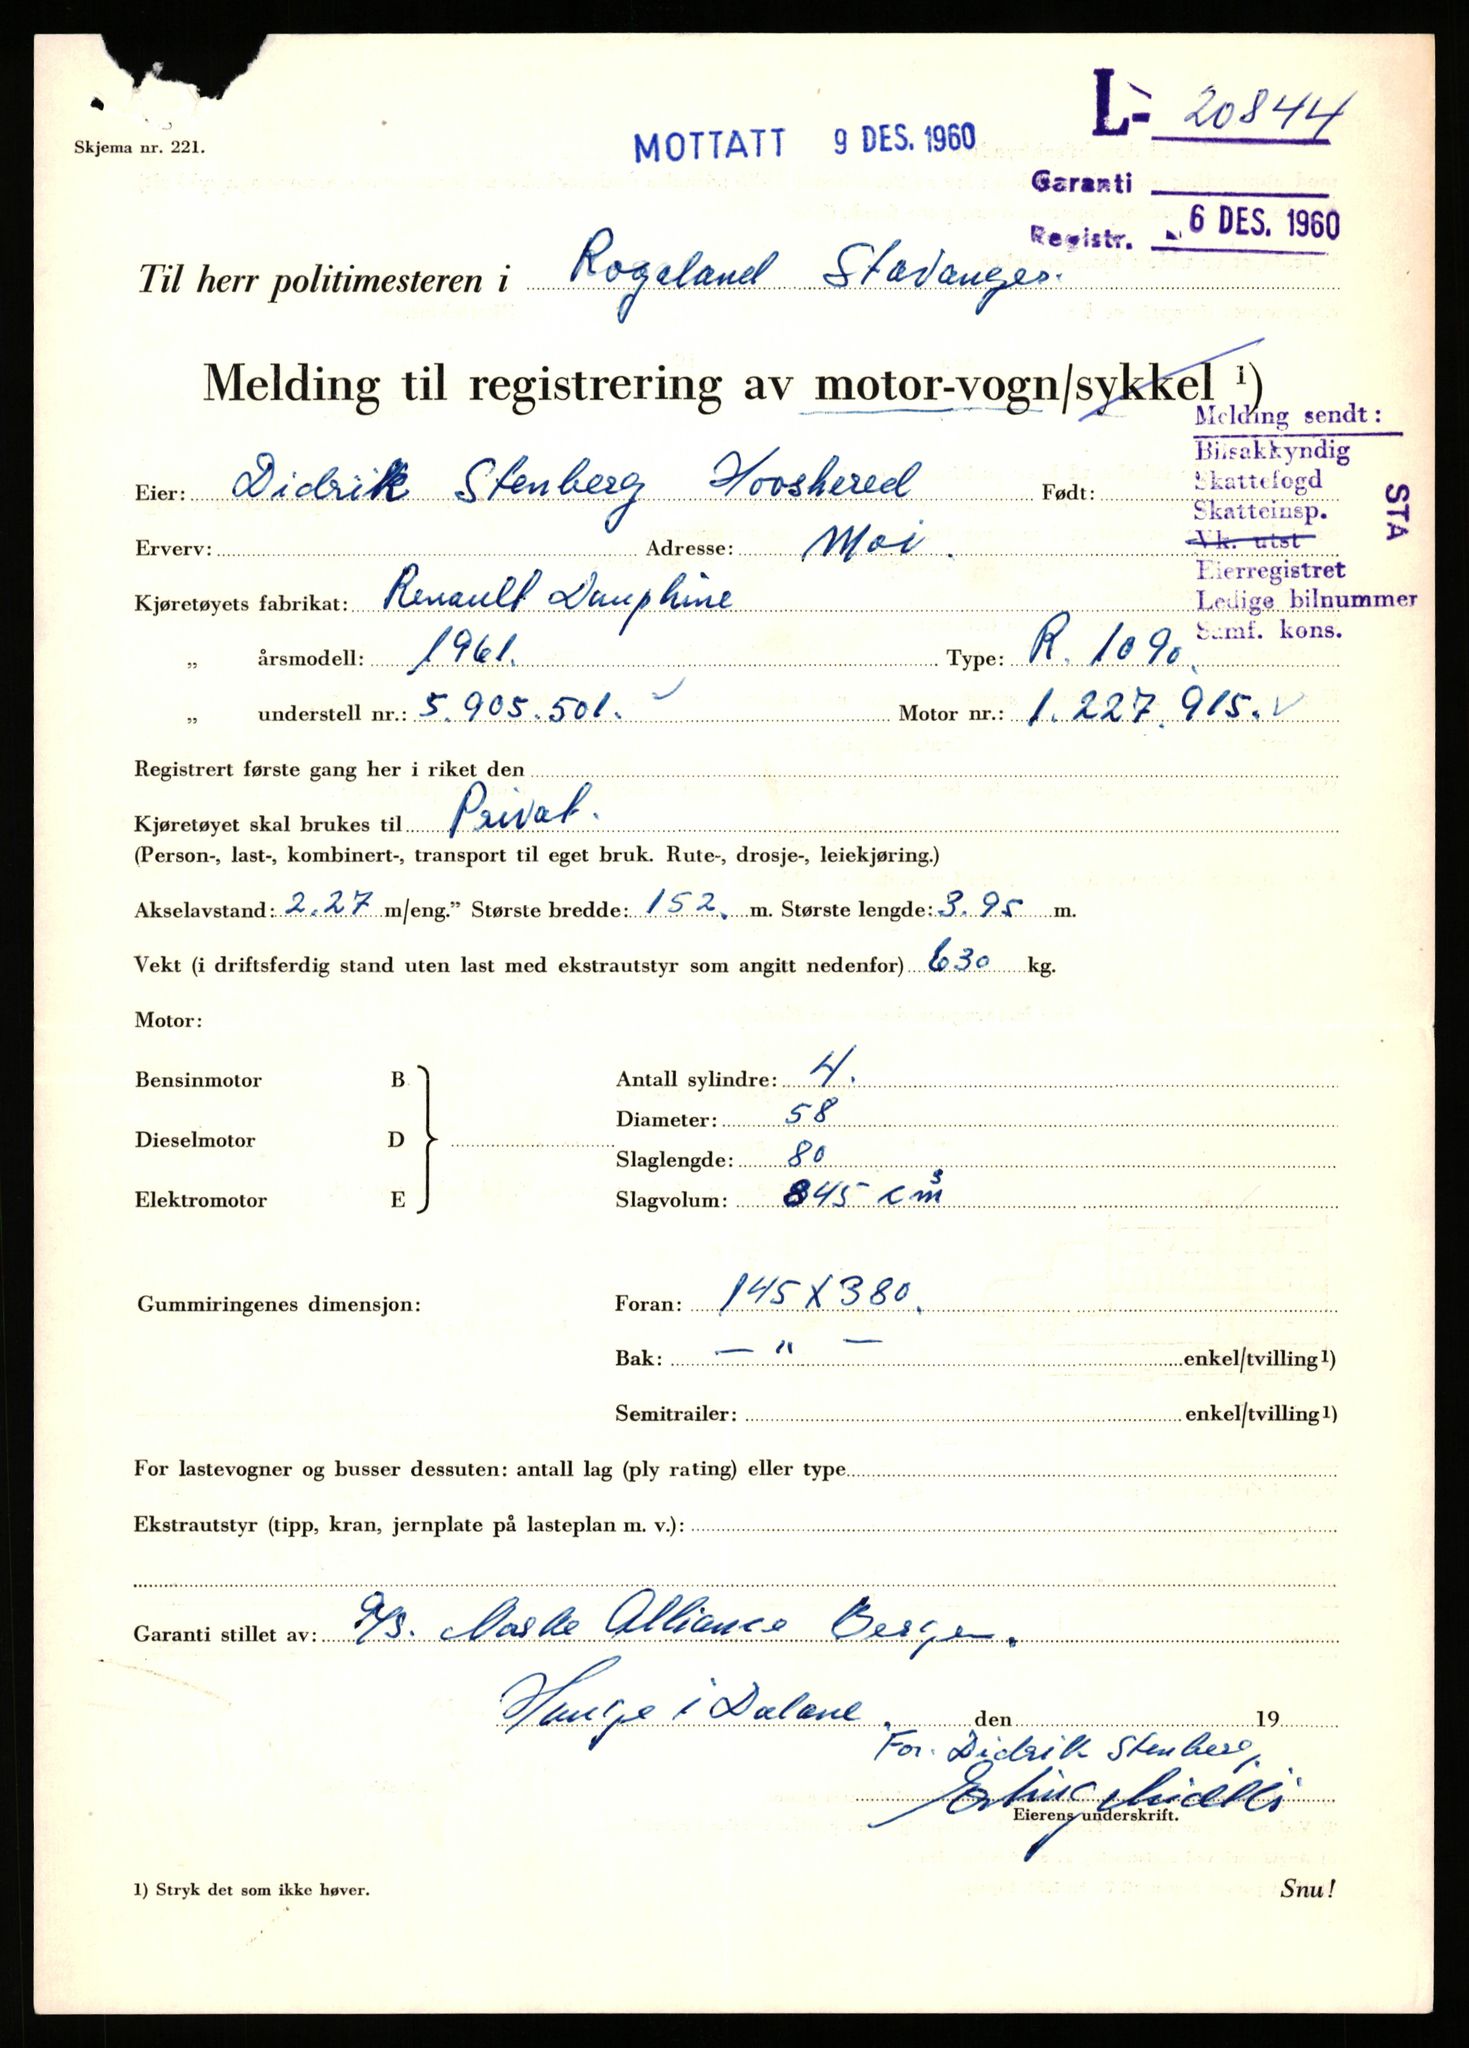 Skjema nr. 221.
MOTTATT 9 DES. 1960
L- 20844
Garanti
Registr. 6 DES. 1960
Til herr politimesteren i Rogaland Stavanger.
Melding til registrering av motor-vogn/sykkel 1)
Melding sendt:
Bilsakkyndig
Skattefogd
Skatteinsp.
Vk. utst
Eierregistret
Ledige bilnummer
Samf. kons.
STA
Eier: Didrik Stenberg Hovshered Født:
Erverv: Adresse: Moi.
Kjøretøyets fabrikat: Renault Dauphine
„ årsmodell: 1961. Type: R. 1090.
„ understell nr.: 5.905.501. Motor nr.: 1.227.915.
Registrert første gang her i riket den
Kjøretøyet skal brukes til Privat.
(Person-, last-, kombinert-, transport til eget bruk. Rute-, drosje-, leiekjøring.)
Akselavstand: 2.27 m/eng.” Største bredde: 152. m. Største lengde: 3.95 m.
Vekt (i driftsferdig stand uten last med ekstrautstyr som angitt nedenfor) 630 kg.
Motor:
Bensinmotor B Antall sylindre: 4.
Diameter: 58
Dieselmotor D
Slaglengde: 80
Elektromotor E Slagvolum: 845 cm³
Gummiringenes dimensjon: Foran: 145 X 380.
Bak: — „ — enkel/tvilling 1)
Semitrailer: enkel/tvilling 1)
For lastevogner og busser dessuten: antall lag (ply rating) eller type
Ekstrautstyr (tipp, kran, jernplate på lasteplan m. v.):
Garanti stillet av: A/S. Norske Alliance Bergen.
Hauge i Dalane. den 19
For. Didrik Stenberg.
Erling
Eierens underskrift.
1) Stryk det som ikke høver.
Snu!